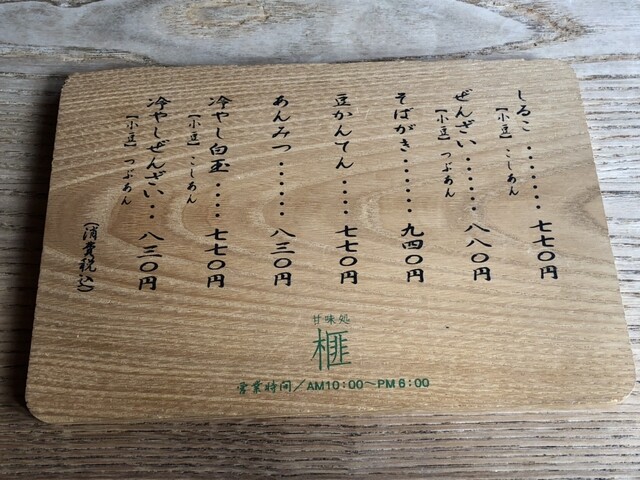 しるこ.......七七〇円
【小豆】こしあん
ぜんざい......八八〇円
【小豆】つぶあん
そばがき......九四〇円
豆かんてん....七七〇円
あんみつ.......八三〇円
冷やし白玉....七七〇円
【小豆】こしあん
冷やしぜんざい...八三〇円
【小豆】つぶあん
(消費税込)
甘味処
榧
営業時間/AM10:00〜PM6:00